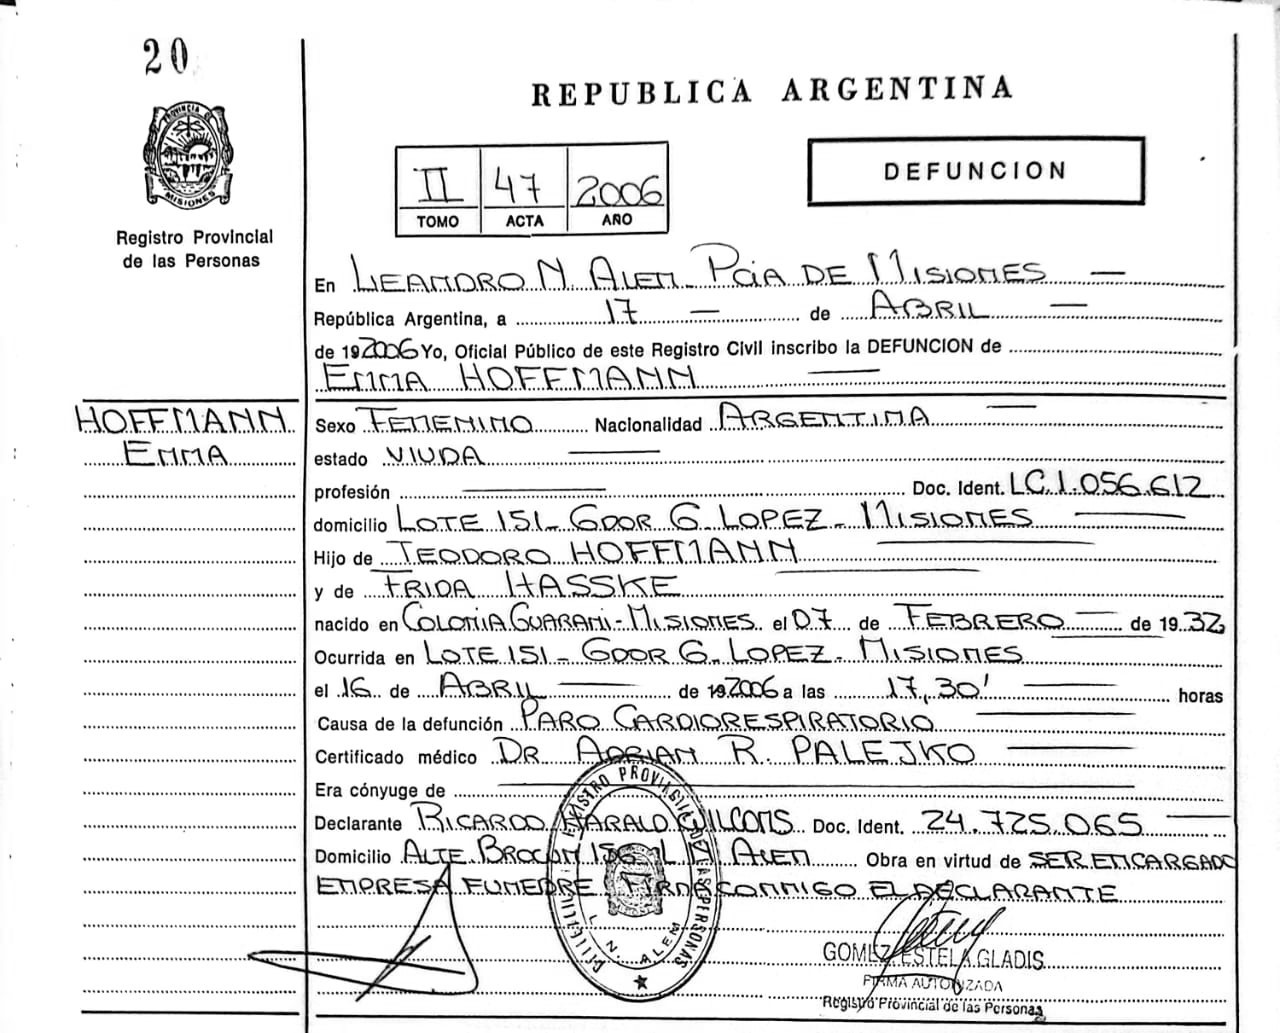 20
PROVINCIA DE
MISIONES
Registro Provincial
de las Personas
REPUBLICA ARGENTINA
II 47 2006
TOMO ACTA AÑO
DEFUNCION
En LEANDRO N. ALEM - PCIA DE MISIONES —
República Argentina, a 17 — de ABRIL —
de 192006 Yo, Oficial Público de este Registro Civil inscribo la DEFUNCION de
EMMA HOFFMANN —
HOFFMANN
EMMA
Sexo FEMENINO Nacionalidad ARGENTINA —
estado VIUDA —
profesión — Doc. Ident. LC.1.056.612
domicilio LOTE 151 - GDOR G. LOPEZ - MISIONES —
Hijo de TEODORO HOFFMANN —
y de FRIDA HASSKE —
nacido en COLONIA GUARANI - MISIONES el 07 de FEBRERO — de 1932
Ocurrida en LOTE 151 - GDOR G. LOPEZ - MISIONES
el 16 de ABRIL — de 192006 a las 17,30' — horas
Causa de la defunción PARO CARDIORESPIRATORIO —
Certificado médico DR ADRIAN R. PALEJKO —
Era cónyuge de —
Declarante RICARDO HARALD Doc. Ident. 24.725.065 —
Domicilio ALTE BROWN L N ALEM Obra en virtud de SER ENCARGADO
EMPRESA FUNEBRE CONMIGO EL DECLARANTE
REGISTRO PROVINCIAL DE LAS PERSONAS
L. N. ALEM
GOMEZ ESTELA GLADIS
FIRMA AUTORIZADA
Registro Provincial de las Personas